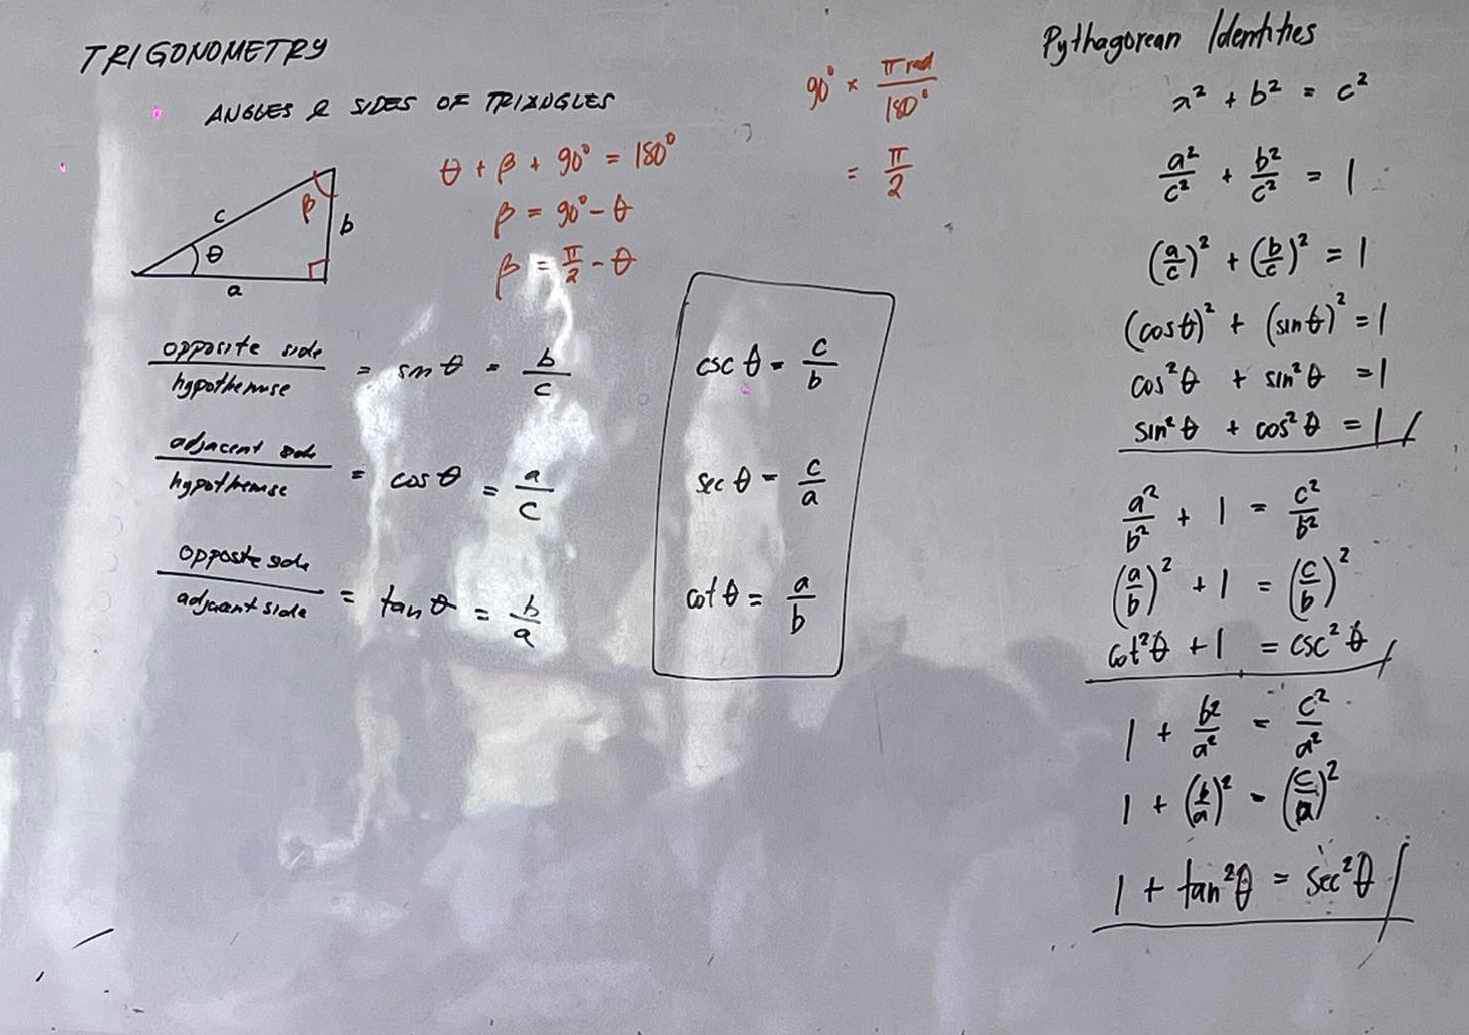 TRIGONOMETRY
ANGLES & SIDES OF TRIANGLES
c
β
b
θ
a
θ + β + 90° = 180°
β = 90° - θ
β = π/2 - θ
90° × π rad/180°
= π/2
opposite side/hypothenuse = sin θ = b/c
adjacent side/hypothenuse = cos θ = a/c
opposite side/adjacent side = tan θ = b/a
csc θ = c/b
sec θ = c/a
cot θ = a/b
Pythagorean Identities
a² + b² = c²
a²/c² + b²/c² = 1
(a/c)² + (b/c)² = 1
(cos θ)² + (sin θ)² = 1
cos² θ + sin² θ = 1
sin² θ + cos² θ = 1
a²/b² + 1 = c²/b²
(a/b)² + 1 = (c/b)²
cot² θ + 1 = csc² θ
1 + b²/a² = c²/a²
1 + (b/a)² = (c/a)²
1 + tan² θ = sec² θ